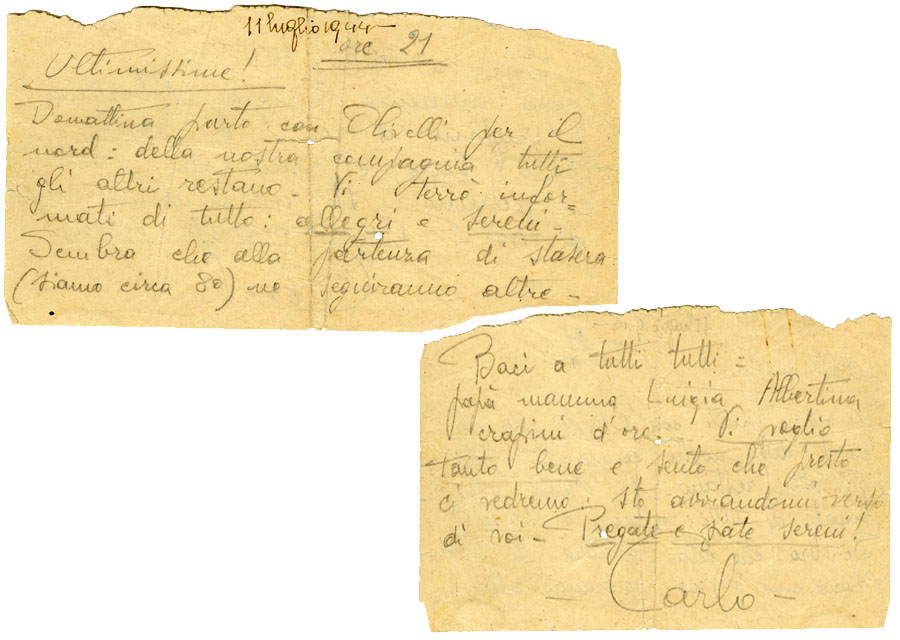 11 luglio 1944
ore 21
Ultimissime!
Domattina parto con Olivelli per il
nord: della nostra compagnia tutti
gli altri restano - Vi terrò infor=
mati di tutto: allegri e sereni -
Sembra che alla partenza di stasera
(siamo circa 80) ne seguiranno altre -
Baci a tutti tutti =
papà mamma Luigia Albertina
crapini d'oro. Vi voglio
tanto bene e sento che presto
ci vedremo: sto avviandomi verso
di voi - Pregate e siate sereni!
- Carlo -